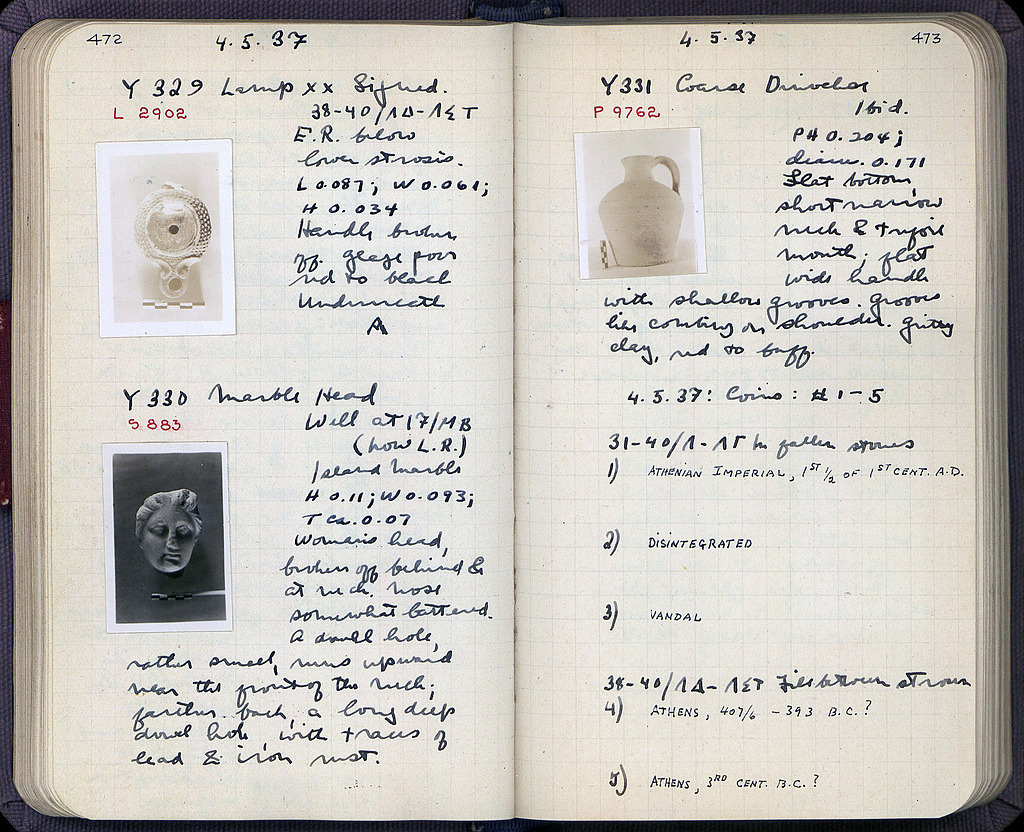 472
4.5.37
Y 329 Lamp xx Signed.
L 2902
38-40/ΛΔ-ΛΣΤ
E.R. below
lower strosis.
L 0.087; W 0.061;
H 0.034
Handle broken
off. glaze poor
red to black
Underneath
A
Y 330 Marble Head
S 883
Well at 17/ΜΒ
(how L.R.)
Island marble
H 0.11; W 0.093;
T ca. 0.07
Woman's head,
broken off behind &
at neck. nose
somewhat battered.
A dowel hole,
rather small, runs upward
near the front of the neck;
farther back, a long deep
dowel hole with traces of
lead & iron rust.
4.5.37
473
Y 331 Coarse
P 9762
Ibid.
PH 0.204;
diam. 0.171
Flat bottom,
short narrow
neck & trefoil
mouth; flat
wide handle
with shallow grooves. grooves
on shoulder. gritty
clay, red to buff.
4.5.37: Coins: # 1-5
31-40/Λ-ΛΓ in fallen stones
1) ATHENIAN IMPERIAL, 1ST 1/2 OF 1ST CENT. A.D.
2) DISINTEGRATED
3) VANDAL
38-40/ΛΔ-ΛΣΤ
4) ATHENS, 407/6 - 393 B.C.?
5) ATHENS, 3RD CENT. B.C.?